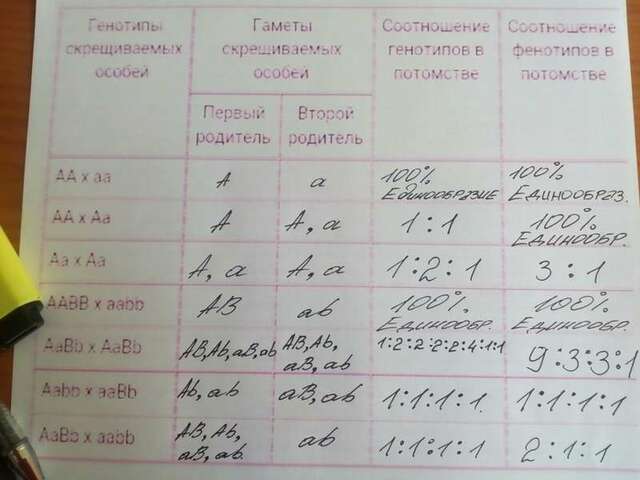 Генотипы скрещиваемых особей
Гаметы скрещиваемых особей
Соотношение генотипов в потомстве
Соотношение фенотипов в потомстве
Первый родитель
Второй родитель
AA x aa
A
a
100% Единообразие
100% Единообраз.
AA x Aa
A
A, a
1:1
100% Единообр.
Aa x Aa
A, a
A, a
1:2:1
3:1
AABB x aabb
AB
ab
100% Единообр.
100% Единообр.
AaBb x AaBb
AB, Ab, aB, ab
AB, Ab, aB, ab
1:2:2:2:2:4:1:1
9:3:3:1
Aabb x aaBb
Ab, ab
aB, ab
1:1:1:1.
1:1:1:1
AaBb x aabb
AB, Ab, aB, ab.
ab
1:1:1:1
2:1:1